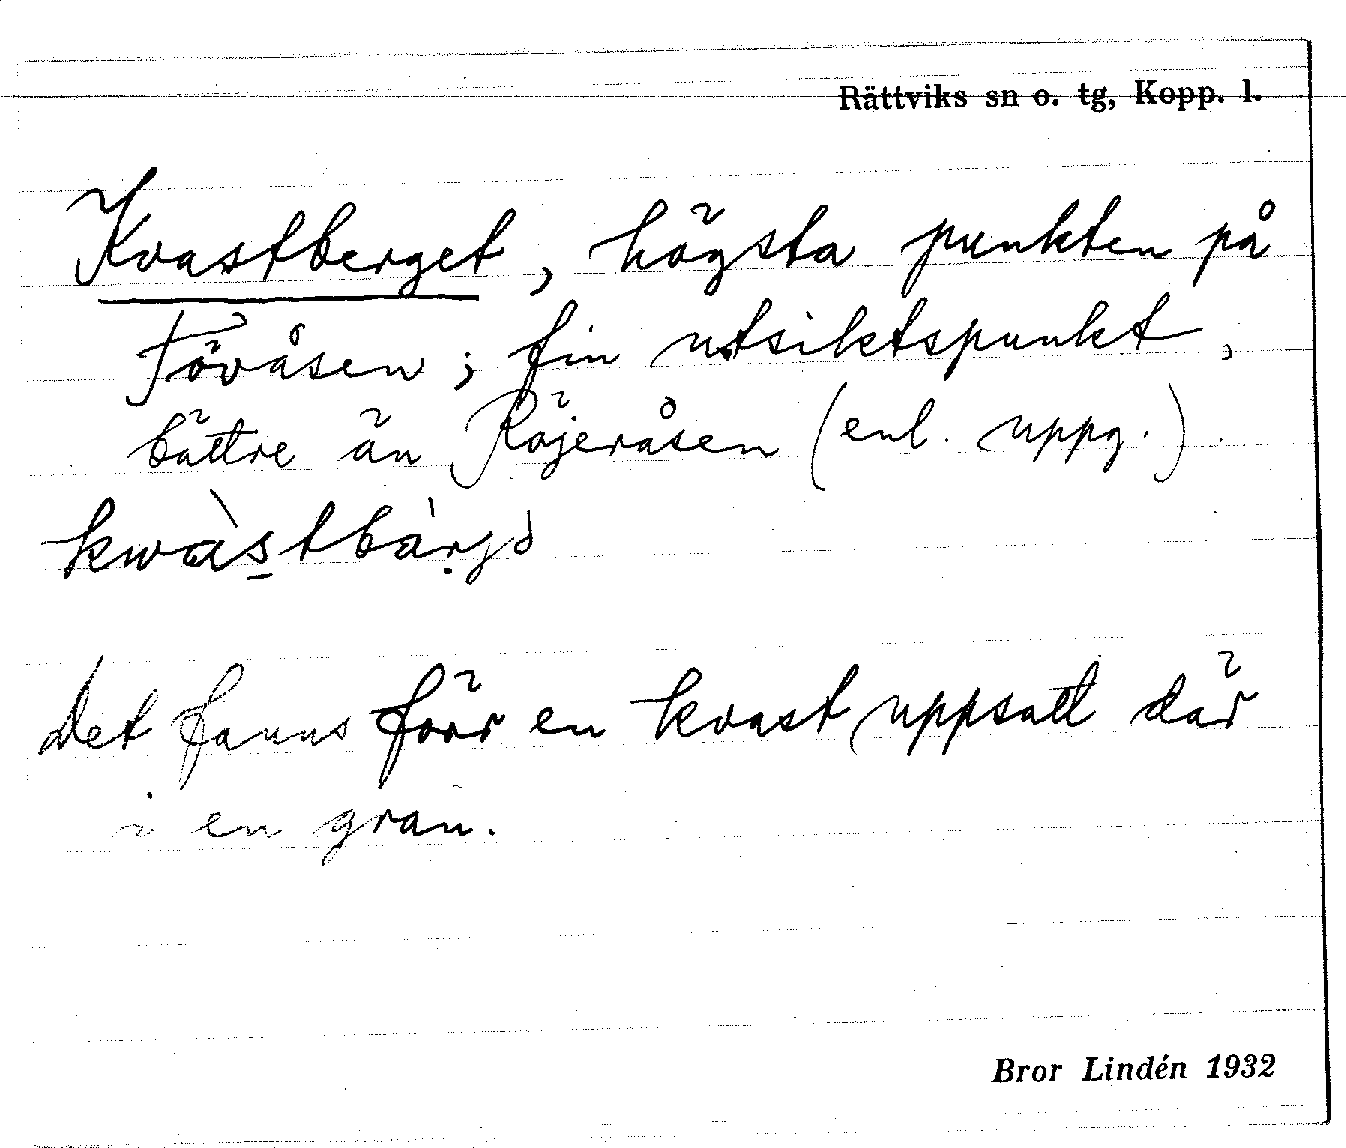 Rättviks sn o. tg, Kopp. l.
Kvastberget, högsta punkten på
Tövåsen; fin utsiktspunkt,
bättre än Röjeråsen (enl. uppg.)
Det fanns förr en kvast uppsatt där
i en gran.
Bror Lindén 1932